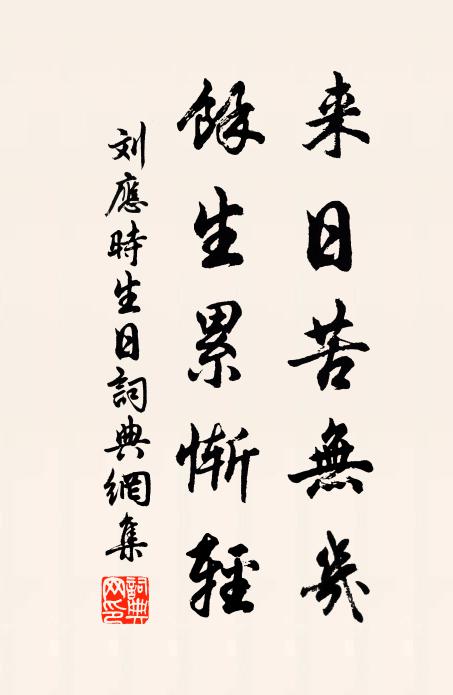 来日苦無幾
餘生累慚輕
刘應時生日詞典網集
詞典网印